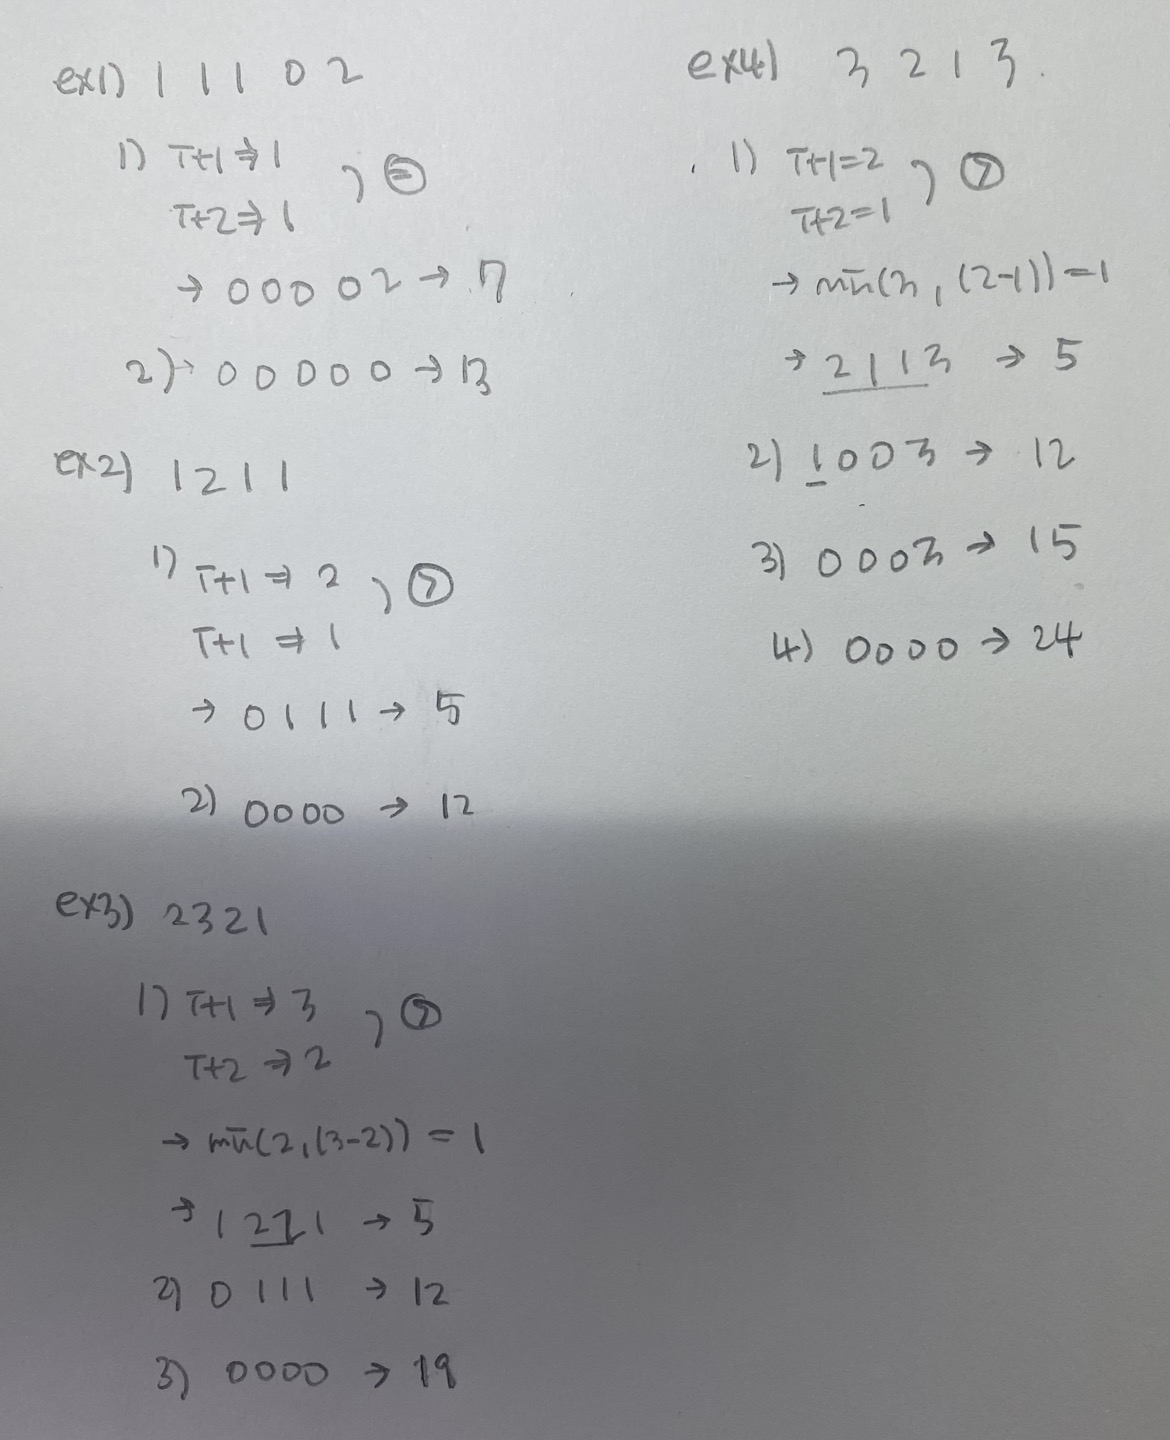 ex1) 1 1 1 0 2
1) T+1 ⇒ 1
T+2 ⇒ 1 , =
→ 0 0 0 0 2 → 7
2) → 0 0 0 0 0 → 13
ex2) 1 2 1 1
1) T+1 ⇒ 2 , >
T+1 ⇒ 1
→ 0 1 1 1 → 5
2) 0 0 0 0 → 12
ex3) 2 3 2 1
1) T+1 ⇒ 3 , >
T+2 ⇒ 2
→ min(2, (3-2)) = 1
→ 1 2 1 → 5
2) 0 1 1 1 → 12
3) 0 0 0 0 → 19
ex4) 3 2 1 3
1) T+1=2 , >
T+2=1
→ min(3, (2-1)) = 1
→ 2 1 1 3 → 5
2) 1 0 0 3 → 12
3) 0 0 0 3 → 15
4) 0 0 0 0 → 24